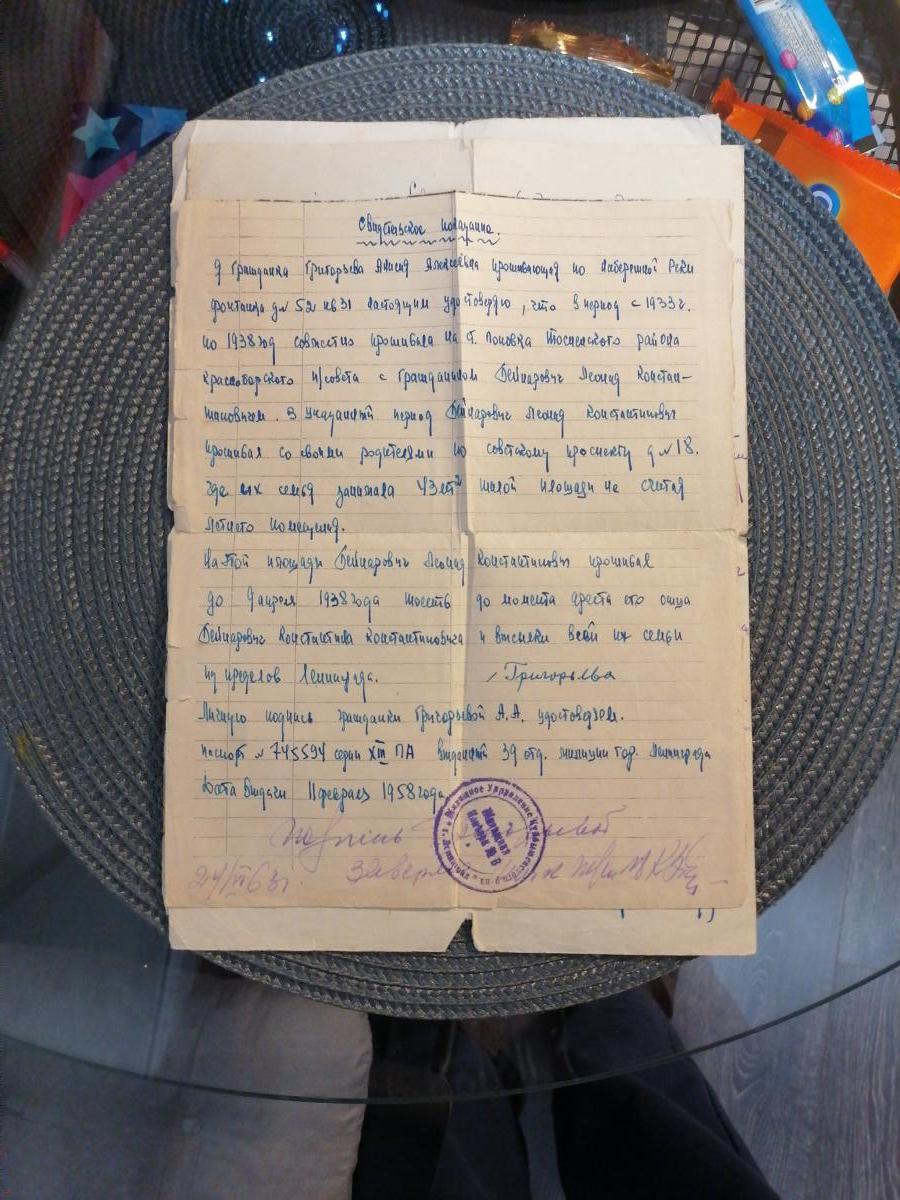 Свидетельское показание.
Я Гражданка Григорьева Алексеевна проживающая по набережной Реки
фонтанка д№ 52 кв 31 настоящим удостоверяю, что в период с 1933 г.
по 1938 год совместно проживала на ст. Поповка Тосненского района
Красноборского п/совета с Гражданином Бейнарович Леонид Констан-
тиновичем. В Указанный период Бейнарович Леонид Константинович
проживал со своими родителями по советскому проспекту д №18.
где их семья занимала 43 жилой площади не считая
летнего помещения.
На этой площади Бейнарович Леонид Константинович проживал
до 9 апреля 1938 года тоесть до момента ареста его отца
Бейнарович Константина Константиновича и высылки всей их семьи
из пределов Ленинграда. Григорьева
Личную подпись гражданки Григорьевой А.А. удостоверяем.
паспорт № 745594 серии XIII ПА выданный 39 отд. милиции гор. Ленинграда
Дата выдачи 11 февраля 1958 года
Жилищное Управление Куйбышевского р-на
Жилищная Контора № 8
подпись
24/VI 63 г.